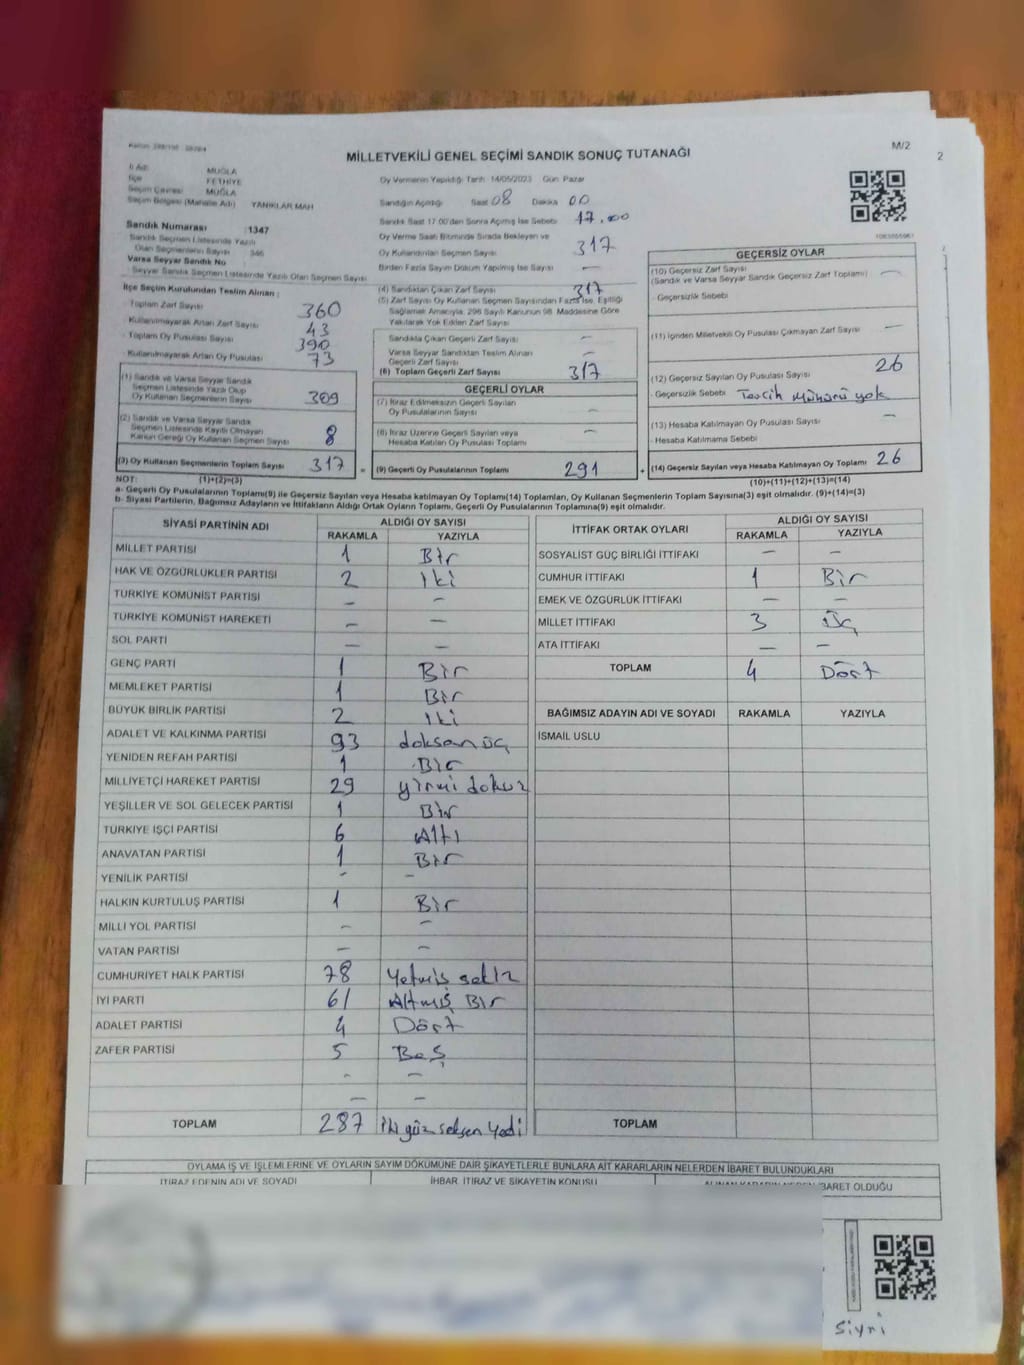 MİLLETVEKİLİ GENEL SEÇİMİ SANDIK SONUÇ TUTANAĞI
M/2
2
İl Adı MUĞLA
İlçe FETHİYE
Seçim Çevresi MUĞLA
Seçim Bölgesi (Mahalle Adı) YANIKLAR MAH
Sandık Numarası 1347
Sandık Seçmen Listesinde Yazılı
Olan Seçmenlerin Sayısı 346
Varsa Seyyar Sandık No
Seyyar Sandık Seçmen Listesinde Yazılı Olan Seçmen Sayısı
Oy Vermenin Yapıldığı Tarih 14/05/2023 Gün Pazar
Sandığın Açıldığı Saat 08 Dakika 00
Sandık Saat 17.00'den Sonra Açılmış İse Sebebi 17.00
Oy Verme Saati Bitiminde Sırada Bekleyen ve
Oy Kullandırılan Seçmen Sayısı 317
Birden Fazla Sayım Döküm Yapılmış İse Sayısı —
İlçe Seçim Kurulundan Teslim Alınan :
Toplam Zarf Sayısı 360
Kullanılmayarak Artan Zarf Sayısı 43
Toplam Oy Pusulası Sayısı 390
Kullanılmayarak Artan Oy Pusulası 73
(1) Sandık ve Varsa Seyyar Sandık
Seçmen Listesinde Yazılı Olup
Oy Kullanan Seçmenlerin Sayısı 309
(2) Sandık ve Varsa Seyyar Sandık
Seçmen Listesinde Kayıtlı Olmayan
Kanun Gereği Oy Kullanan Seçmen Sayısı 8
(3) Oy Kullanan Seçmenlerin Toplam Sayısı 317
(4) Sandıktan Çıkan Zarf Sayısı 317
(5) Zarf Sayısı Oy Kullanan Seçmen Sayısından Fazla İse, Eşitliği
Sağlamak Amacıyla, 298 Sayılı Kanunun 98. Maddesine Göre
Yakılarak Yok Edilen Zarf Sayısı —
Sandıkta Çıkan Geçerli Zarf Sayısı —
Varsa Seyyar Sandıktan Teslim Alınan
Geçerli Zarf Sayısı —
(6) Toplam Geçerli Zarf Sayısı 317
GEÇERLİ OYLAR
(7) İtiraz Edilmeksizin Geçerli Sayılan
Oy Pusulalarının Sayısı —
(8) İtiraz Üzerine Geçerli Sayılan veya
Hesaba Katılan Oy Pusulası Toplamı —
= (9) Geçerli Oy Pusulalarının Toplamı 291
GEÇERSİZ OYLAR
(10) Geçersiz Zarf Sayısı —
(Sandık ve Varsa Seyyar Sandık Geçersiz Zarf Toplamı)
Geçersizlik Sebebi
(11) İçinden Milletvekili Oy Pusulası Çıkmayan Zarf Sayısı —
(12) Geçersiz Sayılan Oy Pusulası Sayısı 26
Geçersizlik Sebebi Tercih Mührü yok
(13) Hesaba Katılmayan Oy Pusulası Sayısı —
Hesaba Katılmama Sebebi
+ (14) Geçersiz Sayılan veya Hesaba Katılmayan Oy Toplamı 26
NOT: (1)+(2)=(3)
(10)+(11)+(12)+(13)=(14)
a- Geçerli Oy Pusulalarının Toplamı(9) ile Geçersiz Sayılan veya Hesaba katılmayan Oy Toplamı(14) Toplamları, Oy Kullanan Seçmenlerin Toplam Sayısına(3) eşit olmalıdır. (9)+(14)=(3)
b- Siyasi Partilerin, Bağımsız Adayların ve İttifakların Aldığı Ortak Oyların Toplamı, Geçerli Oy Pusulalarının Toplamına(9) eşit olmalıdır.
SİYASİ PARTİNİN ADI ALDIĞI OY SAYISI
RAKAMLA YAZIYLA
MİLLET PARTİSİ 1 Bir
HAK VE ÖZGÜRLÜKLER PARTİSİ 2 İki
TÜRKİYE KOMÜNİST PARTİSİ — —
TÜRKİYE KOMÜNİST HAREKETİ — —
SOL PARTİ — —
GENÇ PARTİ 1 Bir
MEMLEKET PARTİSİ 1 Bir
BÜYÜK BİRLİK PARTİSİ 2 İki
ADALET VE KALKINMA PARTİSİ 93 doksan üç
YENİDEN REFAH PARTİSİ 1 Bir
MİLLİYETÇİ HAREKET PARTİSİ 29 yirmi dokuz
YEŞİLLER VE SOL GELECEK PARTİSİ 1 Bir
TÜRKİYE İŞÇİ PARTİSİ 6 Altı
ANAVATAN PARTİSİ 1 Bir
YENİLİK PARTİSİ — —
HALKIN KURTULUŞ PARTİSİ 1 Bir
MİLLİ YOL PARTİSİ — —
VATAN PARTİSİ — —
CUMHURİYET HALK PARTİSİ 78 Yetmiş sekiz
İYİ PARTİ 61 Altmış Bir
ADALET PARTİSİ 4 Dört
ZAFER PARTİSİ 5 Beş
— —
— —
TOPLAM 287 İki yüz seksen yedi
İTTİFAK ORTAK OYLARI ALDIĞI OY SAYISI
RAKAMLA YAZIYLA
SOSYALİST GÜÇ BİRLİĞİ İTTİFAKI — —
CUMHUR İTTİFAKI 1 Bir
EMEK VE ÖZGÜRLÜK İTTİFAKI — —
MİLLET İTTİFAKI 3 Üç
ATA İTTİFAKI — —
TOPLAM 4 Dört
BAĞIMSIZ ADAYIN ADI VE SOYADI RAKAMLA YAZIYLA
İSMAİL USLU
TOPLAM
OYLAMA İŞ VE İŞLEMLERİNE VE OYLARIN SAYIM DÖKÜMÜNE DAİR ŞİKAYETLERLE BUNLARA AİT KARARLARIN NELERDEN İBARET BULUNDUKLARI
İTİRAZ EDENİN ADI VE SOYADI İHBAR, İTİRAZ VE ŞİKAYETİN KONUSU ALINAN KARARIN NEDEN İBARET OLDUĞU